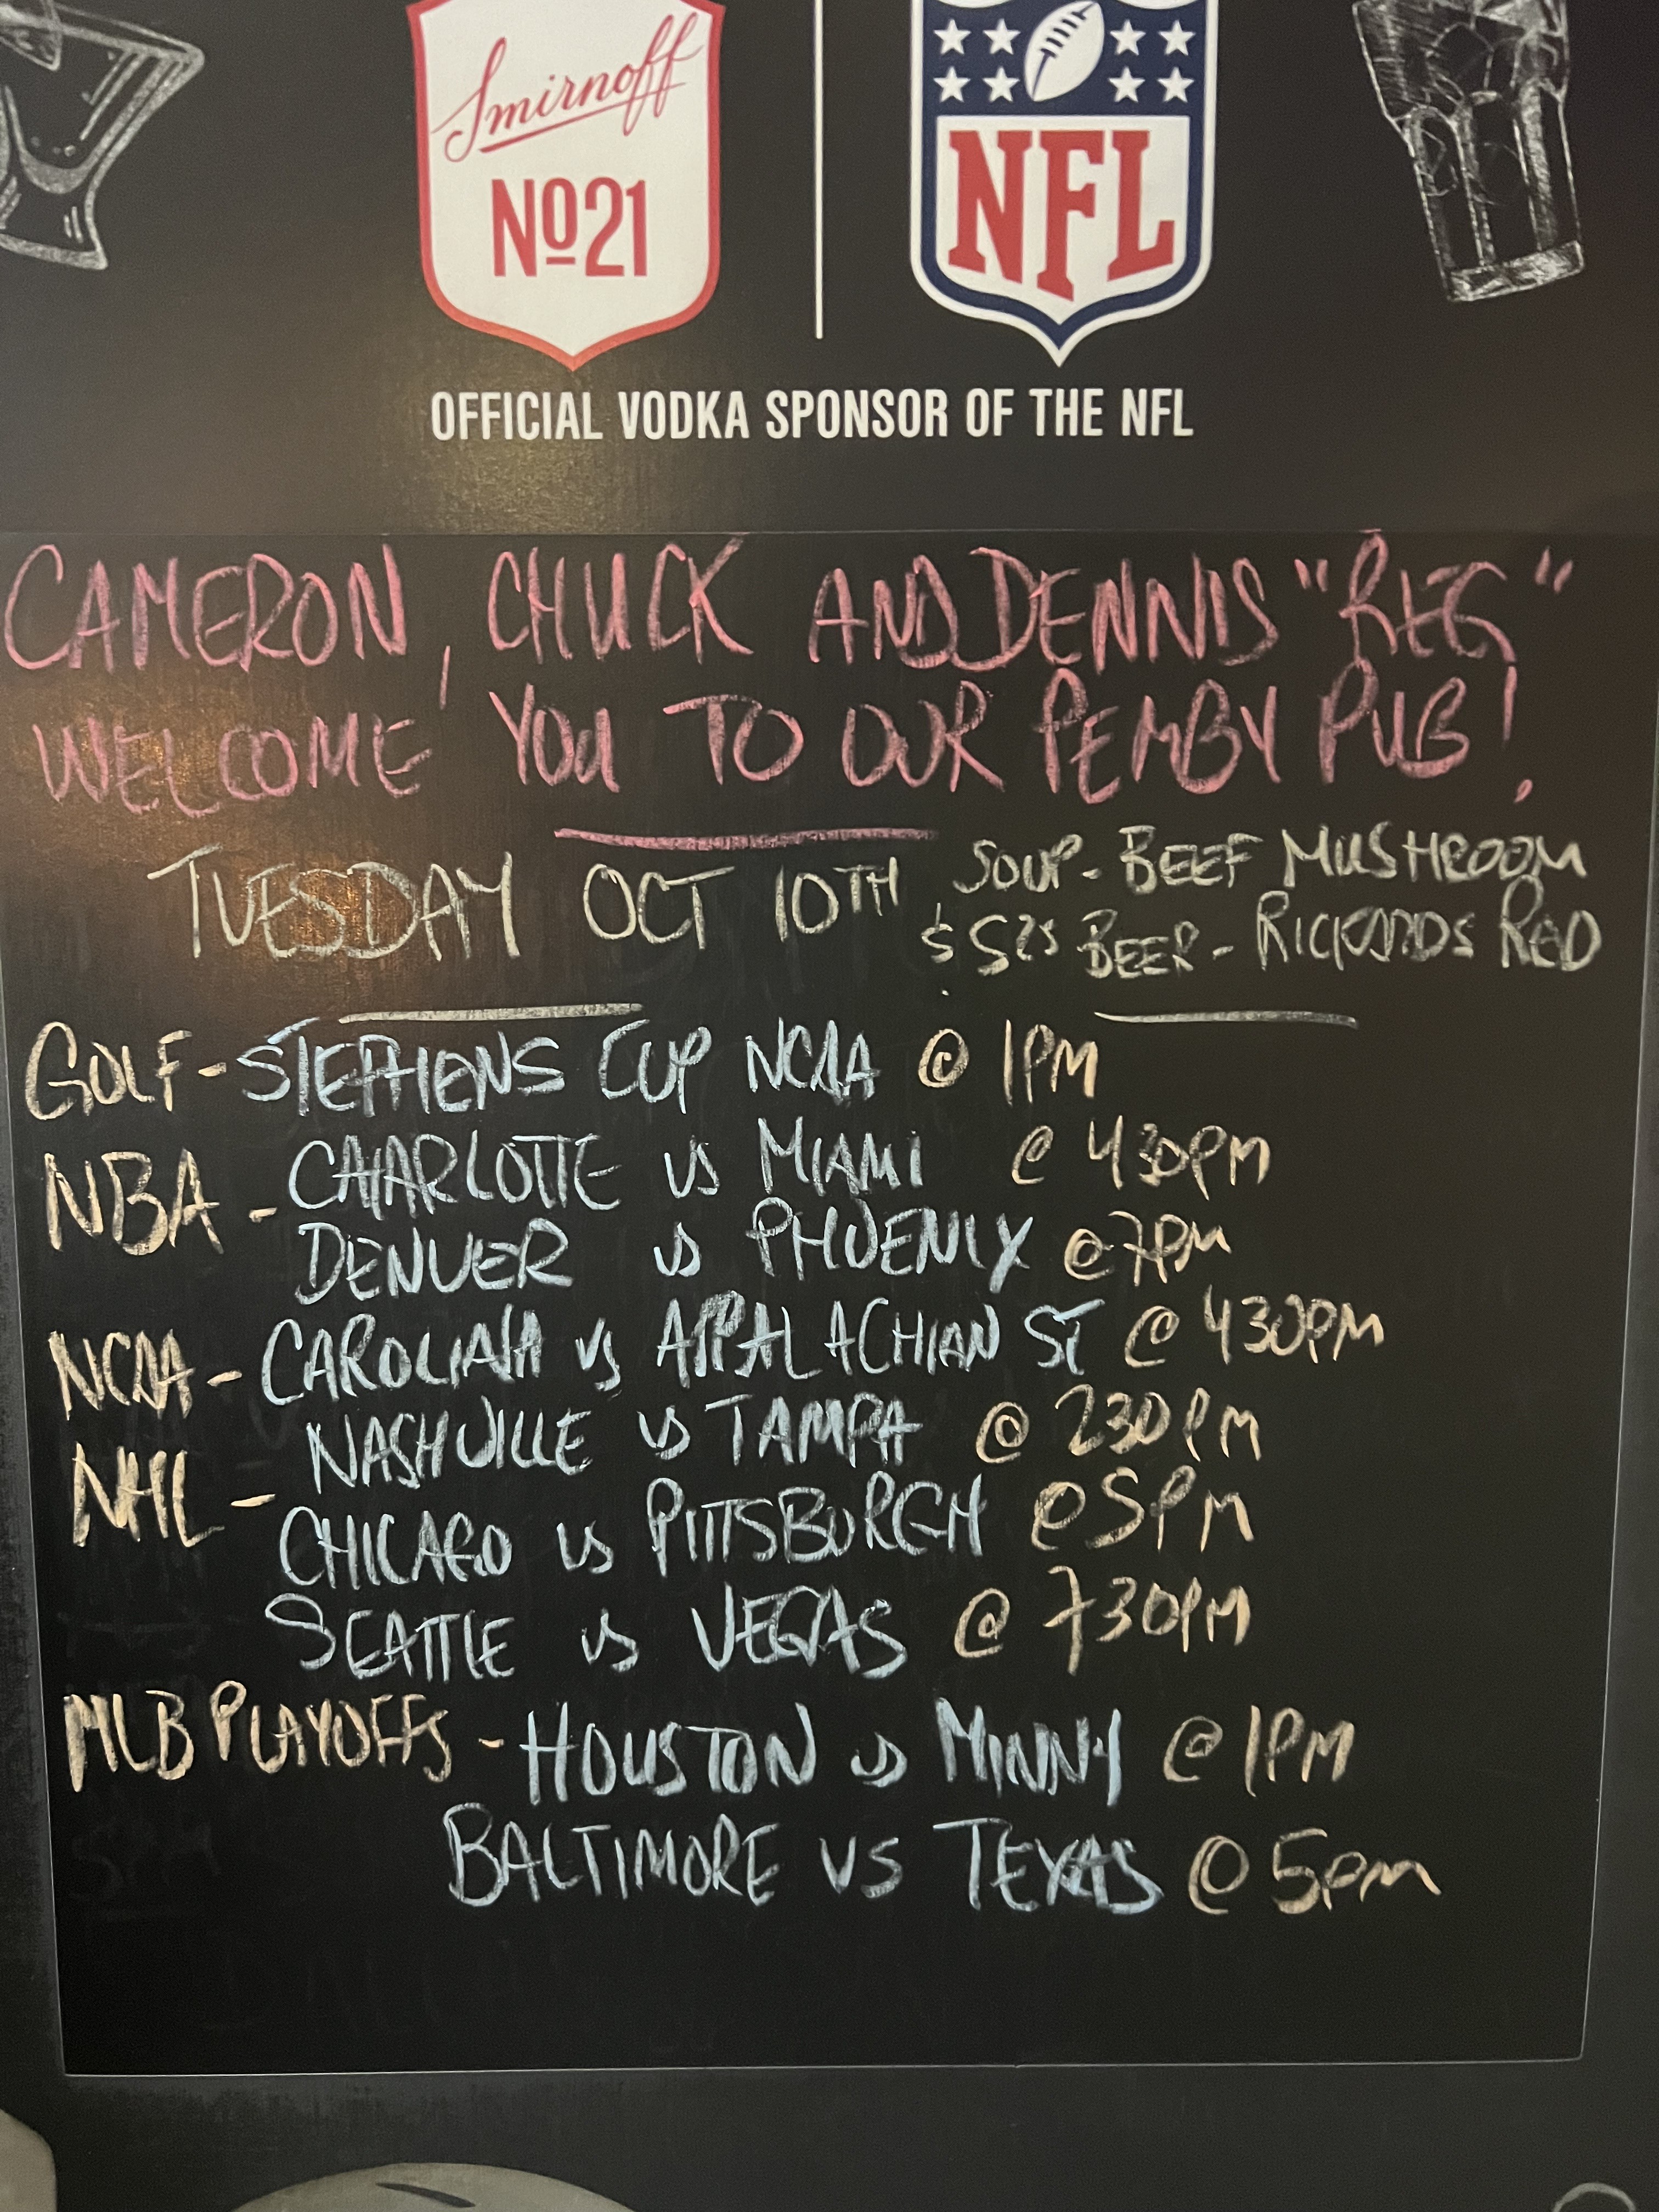 Smirnoff
No21
NFL
OFFICIAL VODKA SPONSOR OF THE NFL
CAMERON, CHUCK AND DENNIS "REG"
WELCOME YOU TO OUR PEMBY PUB!
TUESDAY OCT 10TH
SOUP - BEEF MUSHROOM
$525 BEER - RICKARDS RED
GOLF - STEPHENS CUP NCAA @ 1PM
NBA - CHARLOTTE VS MIAMI @ 430PM
DENVER VS PHOENIX @ 7PM
NCAA - CAROLINA VS APPALACHIAN ST @ 430PM
NHL - NASHVILLE VS TAMPA @ 230PM
CHICAGO VS PITTSBURGH @ 5PM
SEATTLE VS VEGAS @ 730PM
MLB PLAYOFFS - HOUSTON VS MINNY @ 1PM
BALTIMORE VS TEXAS @ 5PM